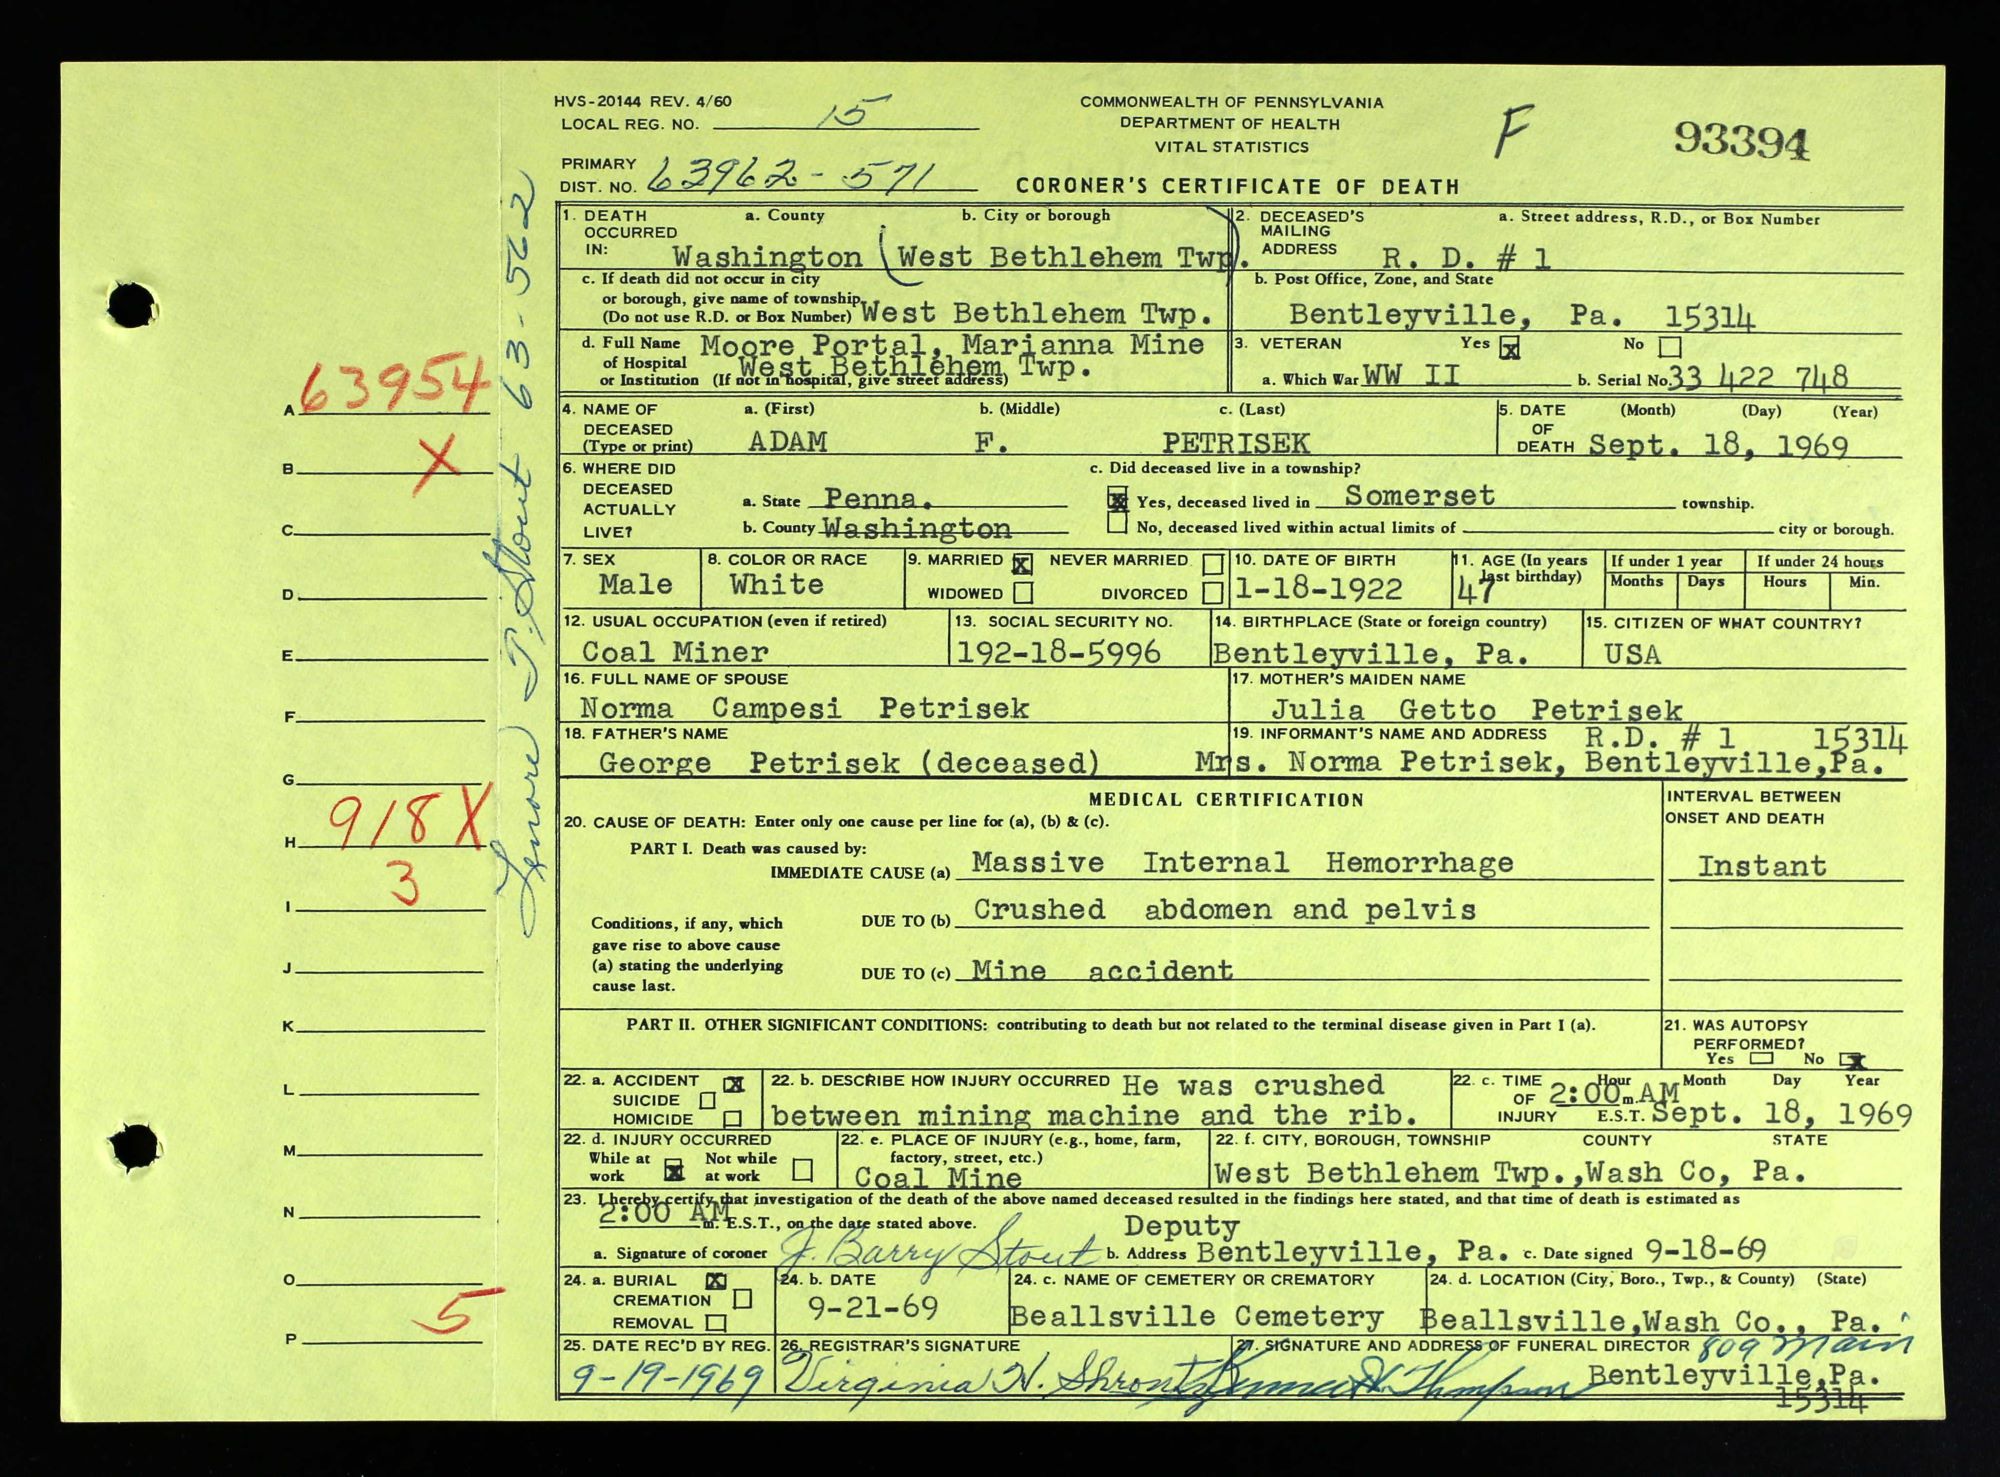 HVS-20144 REV. 4/60
LOCAL REG. NO. 15
PRIMARY
DIST. NO. 63962-571
COMMONWEALTH OF PENNSYLVANIA
DEPARTMENT OF HEALTH
VITAL STATISTICS
CORONER'S CERTIFICATE OF DEATH
F
93394
1. DEATH OCCURRED IN: a. County Washington b. City or borough (West Bethlehem Twp).
c. If death did not occur in city
or borough, give name of township
(Do not use R.D. or Box Number) West Bethlehem Twp.
d. Full Name of Hospital or Institution (If not in hospital, give street address) Moore Portal, Marianna Mine
West Bethlehem Twp.
2. DECEASED'S MAILING ADDRESS a. Street address, R.D., or Box Number
R. D. # 1
b. Post Office, Zone, and State
Bentleyville, Pa. 15314
3. VETERAN Yes X No
a. Which War WW II b. Serial No. 33 422 748
4. NAME OF DECEASED (Type or print) a. (First) b. (Middle) c. (Last)
ADAM F. PETRISEK
5. DATE OF DEATH (Month) (Day) (Year)
Sept. 18, 1969
6. WHERE DID DECEASED ACTUALLY LIVE?
a. State Penna.
b. County Washington
c. Did deceased live in a township?
X Yes, deceased lived in Somerset township.
No, deceased lived within actual limits of city or borough.
7. SEX
Male
8. COLOR OR RACE
White
9. MARRIED X NEVER MARRIED
WIDOWED DIVORCED
10. DATE OF BIRTH
1-18-1922
11. AGE (In years last birthday)
47
If under 1 year
Months Days
If under 24 hours
Hours Min.
12. USUAL OCCUPATION (even if retired)
Coal Miner
13. SOCIAL SECURITY NO.
192-18-5996
14. BIRTHPLACE (State or foreign country)
Bentleyville, Pa.
15. CITIZEN OF WHAT COUNTRY?
USA
16. FULL NAME OF SPOUSE
Norma Campesi Petrisek
17. MOTHER'S MAIDEN NAME
Julia Getto Petrisek
18. FATHER'S NAME
George Petrisek (deceased)
19. INFORMANT'S NAME AND ADDRESS R.D. # 1 15314
Mrs. Norma Petrisek, Bentleyville,Pa.
MEDICAL CERTIFICATION
INTERVAL BETWEEN
ONSET AND DEATH
20. CAUSE OF DEATH: Enter only one cause per line for (a), (b) & (c).
PART I. Death was caused by:
IMMEDIATE CAUSE (a) Massive Internal Hemorrhage
Instant
Conditions, if any, which
gave rise to above cause
(a) stating the underlying
cause last.
DUE TO (b) Crushed abdomen and pelvis
DUE TO (c) Mine accident
PART II. OTHER SIGNIFICANT CONDITIONS: contributing to death but not related to the terminal disease given in Part I (a).
21. WAS AUTOPSY
PERFORMED?
Yes No X
22. a. ACCIDENT X
SUICIDE
HOMICIDE
22. b. DESCRIBE HOW INJURY OCCURRED He was crushed
between mining machine and the rib.
22. c. TIME OF INJURY Hour Month Day Year
2:00 m. AM
E.S.T. Sept. 18, 1969
22. d. INJURY OCCURRED
While at work X Not while at work
22. e. PLACE OF INJURY (e.g., home, farm,
factory, street, etc.)
Coal Mine
22. f. CITY, BOROUGH, TOWNSHIP COUNTY STATE
West Bethlehem Twp.,Wash Co, Pa.
23. I hereby certify that investigation of the death of the above named deceased resulted in the findings here stated, and that time of death is estimated as
2:00 AM m. E.S.T., on the date stated above.
Deputy
a. Signature of coroner J. Barry Stout b. Address Bentleyville, Pa. c. Date signed 9-18-69
24. a. BURIAL X
CREMATION
REMOVAL
24. b. DATE
9-21-69
24. c. NAME OF CEMETERY OR CREMATORY
Beallsville Cemetery
24. d. LOCATION (City, Boro., Twp., & County) (State)
Beallsville,Wash Co., Pa.
25. DATE REC'D BY REG.
9-19-1969
26. REGISTRAR'S SIGNATURE
Virginia H. Shrontz
27. SIGNATURE AND ADDRESS OF FUNERAL DIRECTOR 809 Main
Thompson Bentleyville,Pa.
15314
A 63954
B X
C
D
E
F
G
H 918X
I 3
J
K
L
M
N
O
P 5
Lenore T. Stout 63-562